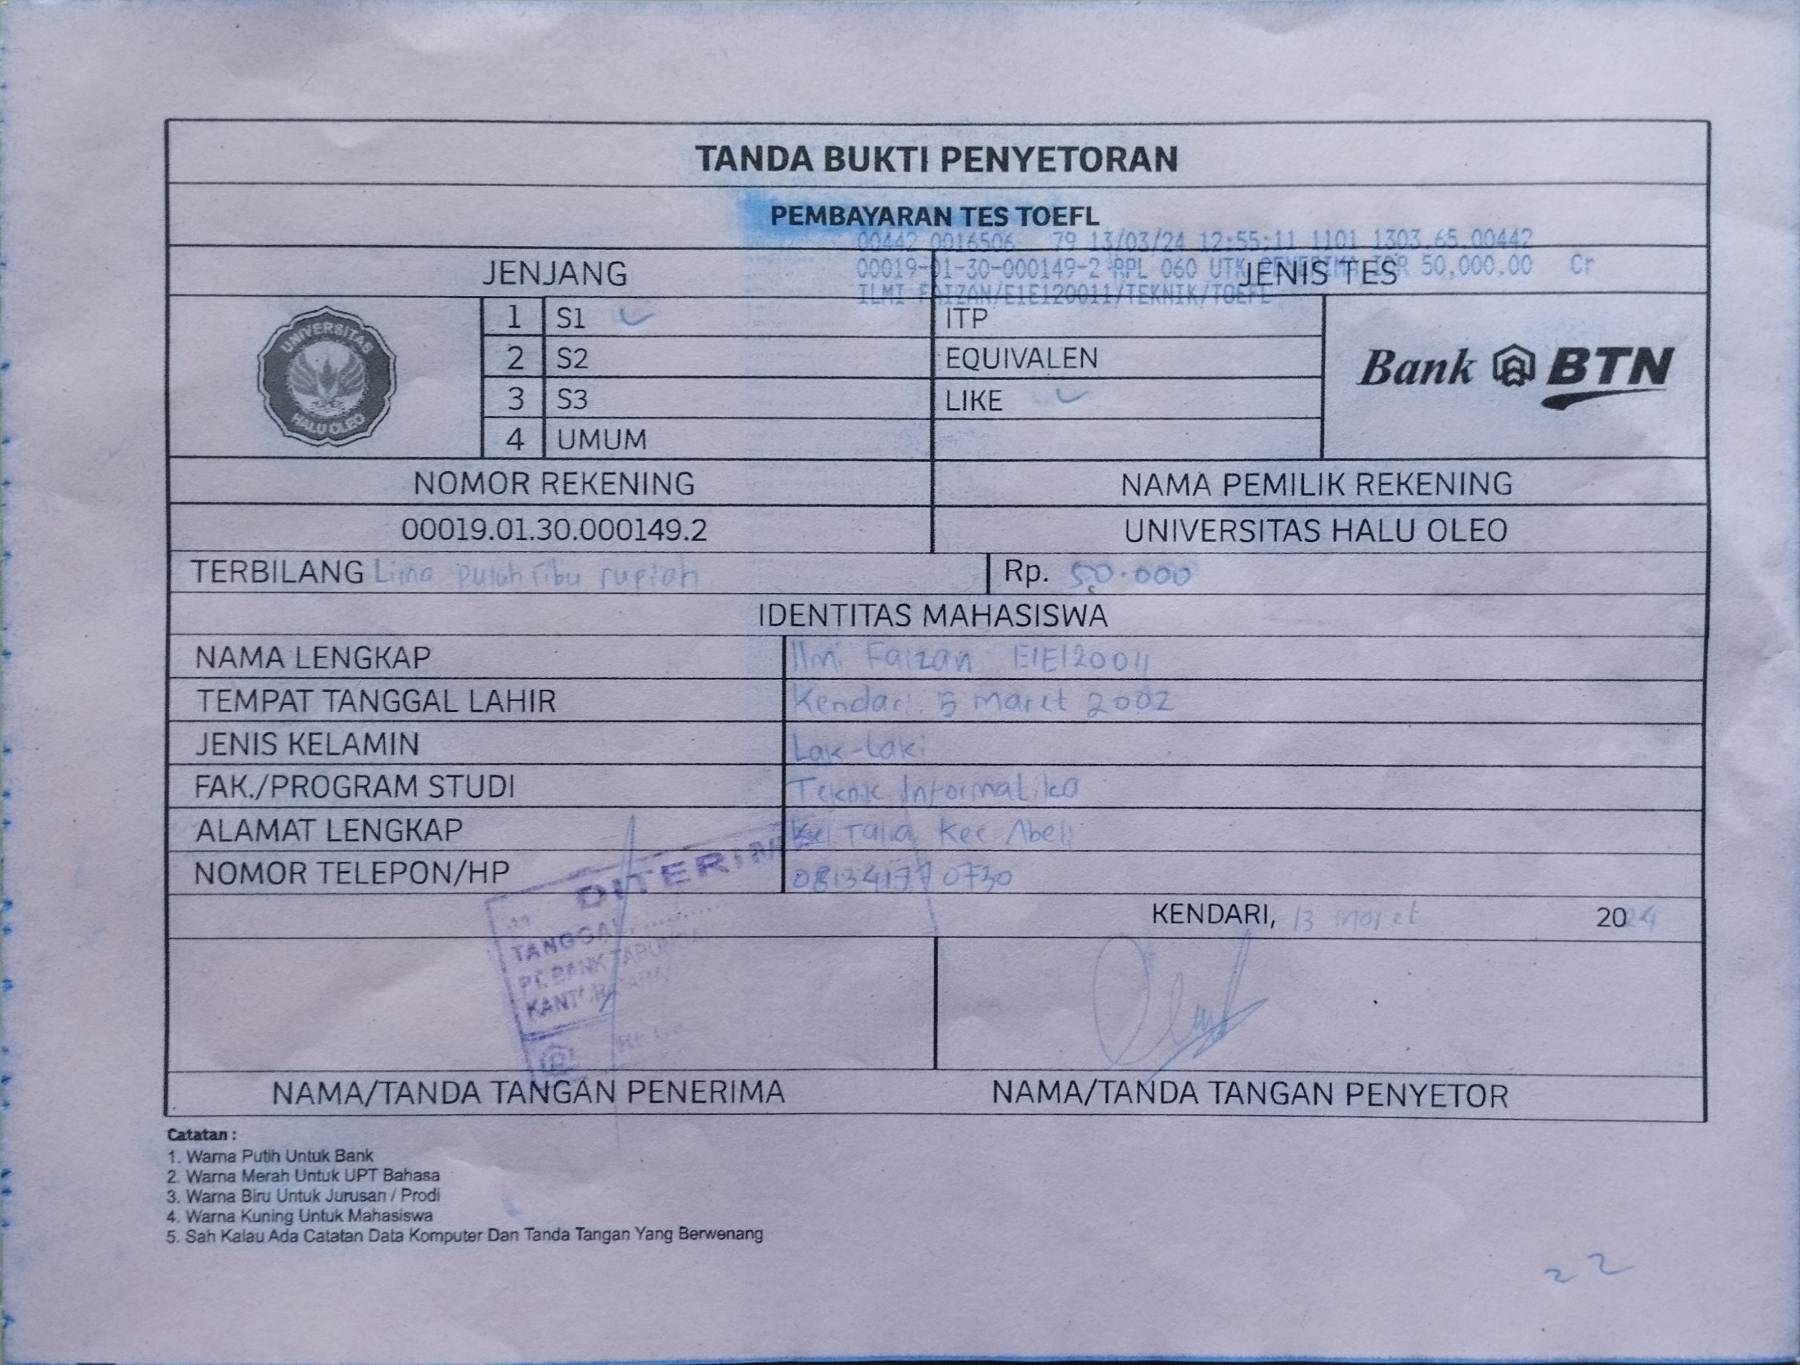 TANDA BUKTI PENYETORAN
PEMBAYARAN TES TOEFL
00442 0016506 79 13/03/24 12:55:11 1101 1303.65.00442
00019-01-30-000149-2 RPL 060 UTK PENERIMA IDR 50,000.00 Cr
ILMI FAIZAN/E1E120011/TEKNIK/TOEFL
JENJANG JENIS TES
UNIVERSITAS HALU OLEO
1 S1 ITP
2 S2 EQUIVALEN
3 S3 LIKE
4 UMUM
Bank BTN
NOMOR REKENING NAMA PEMILIK REKENING
00019.01.30.000149.2 UNIVERSITAS HALU OLEO
TERBILANG Lima puluh ribu rupiah Rp. 50.000
IDENTITAS MAHASISWA
NAMA LENGKAP Ilmi Faizan E1E120011
TEMPAT TANGGAL LAHIR Kendari. 5 Maret 2002
JENIS KELAMIN Lak-Laki
FAK./PROGRAM STUDI Teknik Informatika
ALAMAT LENGKAP Kel Talia Kec. Abeli
NOMOR TELEPON/HP
DITERIMA
TANGGAL
PT. BANK TABUNGA
KANTOR
KENDARI, 13 Maret 2024
NAMA/TANDA TANGAN PENERIMA NAMA/TANDA TANGAN PENYETOR
Catatan :
1. Warna Putih Untuk Bank
2. Warna Merah Untuk UPT Bahasa
3. Warna Biru Untuk Jurusan / Prodi
4. Warna Kuning Untuk Mahasiswa
5. Sah Kalau Ada Catatan Data Komputer Dan Tanda Tangan Yang Berwenang
22